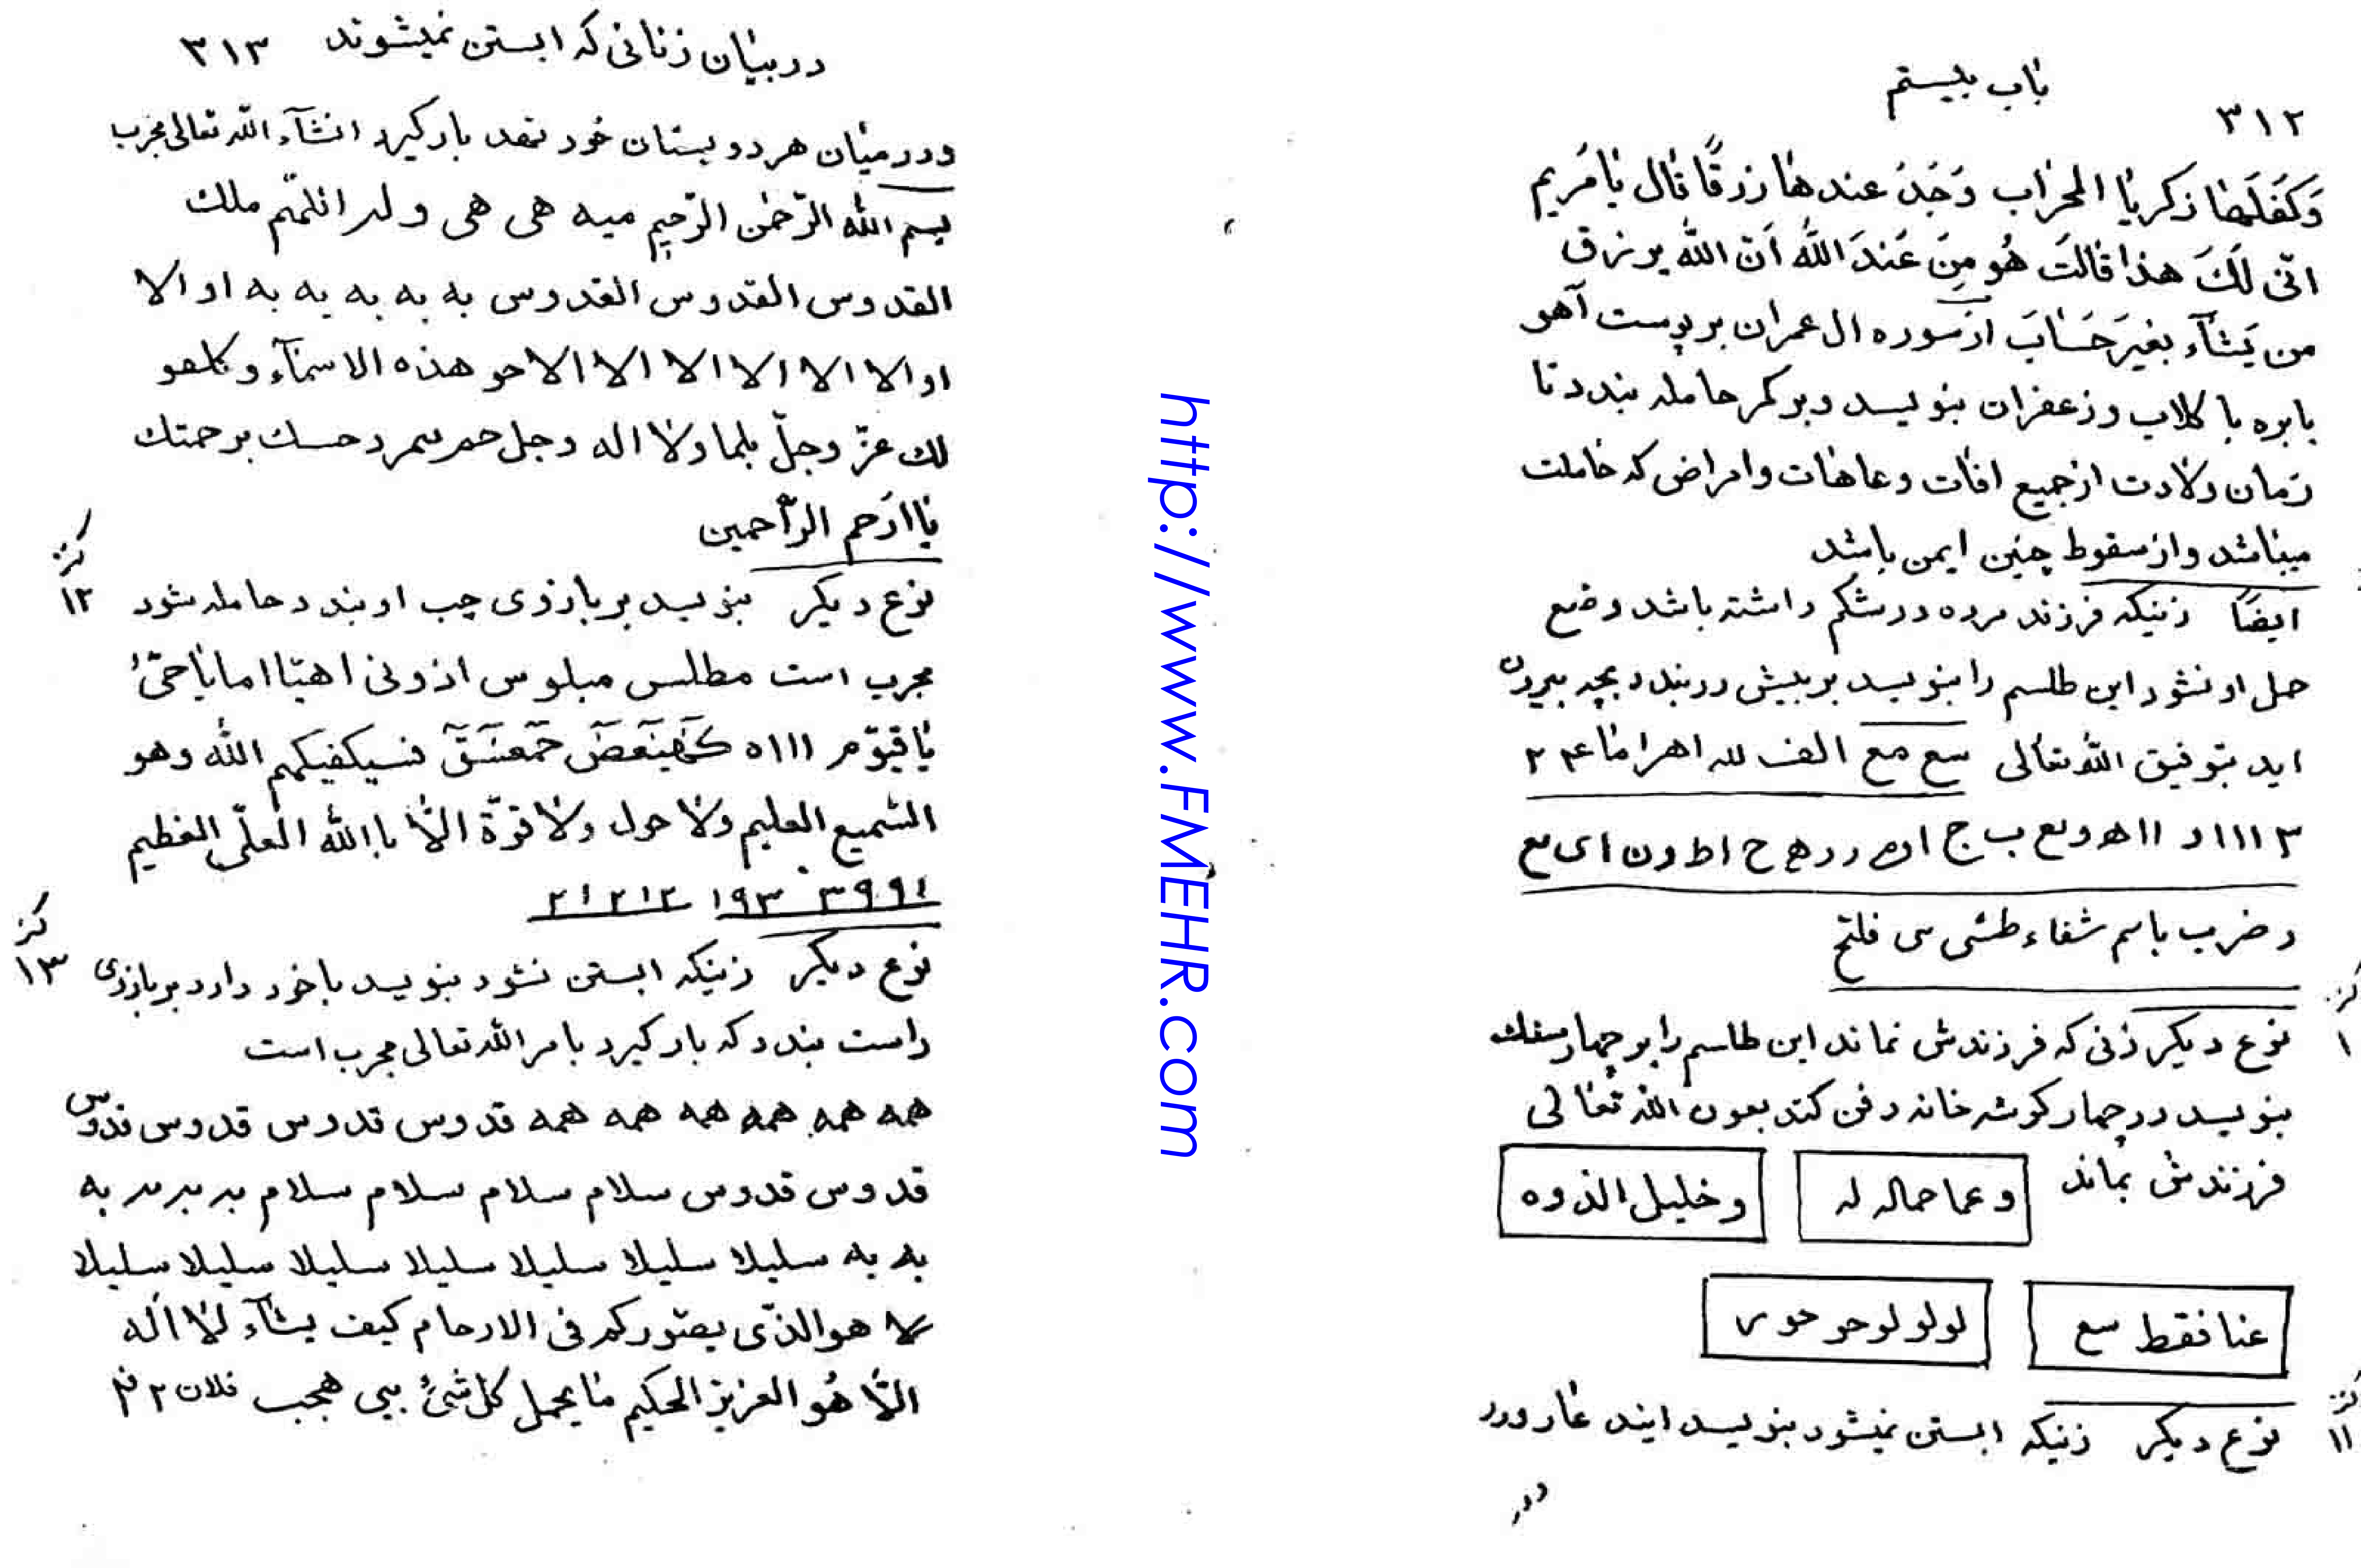 باب بیستم
۳۱۲
وَکَفَلَها زکریا المحراب وَجَدَ عندها رزقًا قال یا مَریم
انّی لَکَ هذا قالَت هُو مِن عَندَ الله اَنّ الله یرزق
من یَشآء بغیرَ حَسٰابَ از سوره ال عمران بر پوست آهو
یا بره با کلاب و زعفران بنویسد و بر کمر حامله بندد تا
زمان ولادت از جمیع افات و عاهات و امراض که حاملت
میباشد و از سقوط چنین ایمن باشد
ایضًا زنیکه فرزند مرده در شکم داشته باشد وضع
حمل او نشود این طلسم را بنویسد بر پیش در بندد بچه بیرون
اید بتوفیق الله تعالی سع مع الف لله اهراما ۲۴
۳ ۱۱۱ د ۱۱ هـ و بع ب ج ح اط ون ای مع
و ضرب باسم شفاء
کز
۱
نوع دیکر زنی که فرزندش نماند این طلسم را بر چهار سفال
بنویسد در چهار کوشه خانه دفن کند بعون الله تعالی
فرزندش بماند
وعما حماله له
و خلیل الذوه
عنا فقط سع
لو لو لو حو حو
کز
۱۱
نوع دیکر زنیکه ابستن نمیشود بنویسد ایند عار و در
در
http://www.FMEHR.com
در بیان زنانی که ابستن نمیشوند ۳۱۳
و در میان هر دو پستان خود نهد بار کیرد انشآء الله تعالی مجرب
بسم الله الرّحمن الرّحیم میه هی هی و له ملك
القدوس القدوس القدوس به به به به به او الا
او الا الا الا الا الا الا حو هذه الاسمآء و کلهو
لك عزّ وجلّ بلما ولا اله وجل برحمتك
یا ارحم الرّاحمین
کز
۱۲
نوع دیکر بنویسد بر بازوی چپ او بندد حامله شود
مجرب است مطلس مبلوس اذونی اهیّا اما یا حیّ
یا قیّوم ۱۱۱ه کهیعص حمعسق فسیکفیکهم الله وهو
السّمیع العلیم ولا حول ولا قوّة الّا باالله العلّی العظیم
۳۹۹۱ ۱۹۳ ۲۱۲۱۲
کز
۱۳
نوع دیکر زنیکه ابستن نشود بنویسد با خود دارد بر بازوی
راست بندد که بار کیرد بامر الله تعالی مجرب است
همه همه همه همه همه همه قدوس قدوس قدوس قدوس
قدوس قدوس سلام سلام سلام سلام به به به به
به به سلیلا سلیلا سلیلا سلیلا سلیلا سلیلا سلیلا
لا هو الذّی یصّورکم فی الارحام کیف یشآء لا اله
الّا هُو العزیز الحکیم ما یحمل کل شیُ بیی هجب فلان ۲